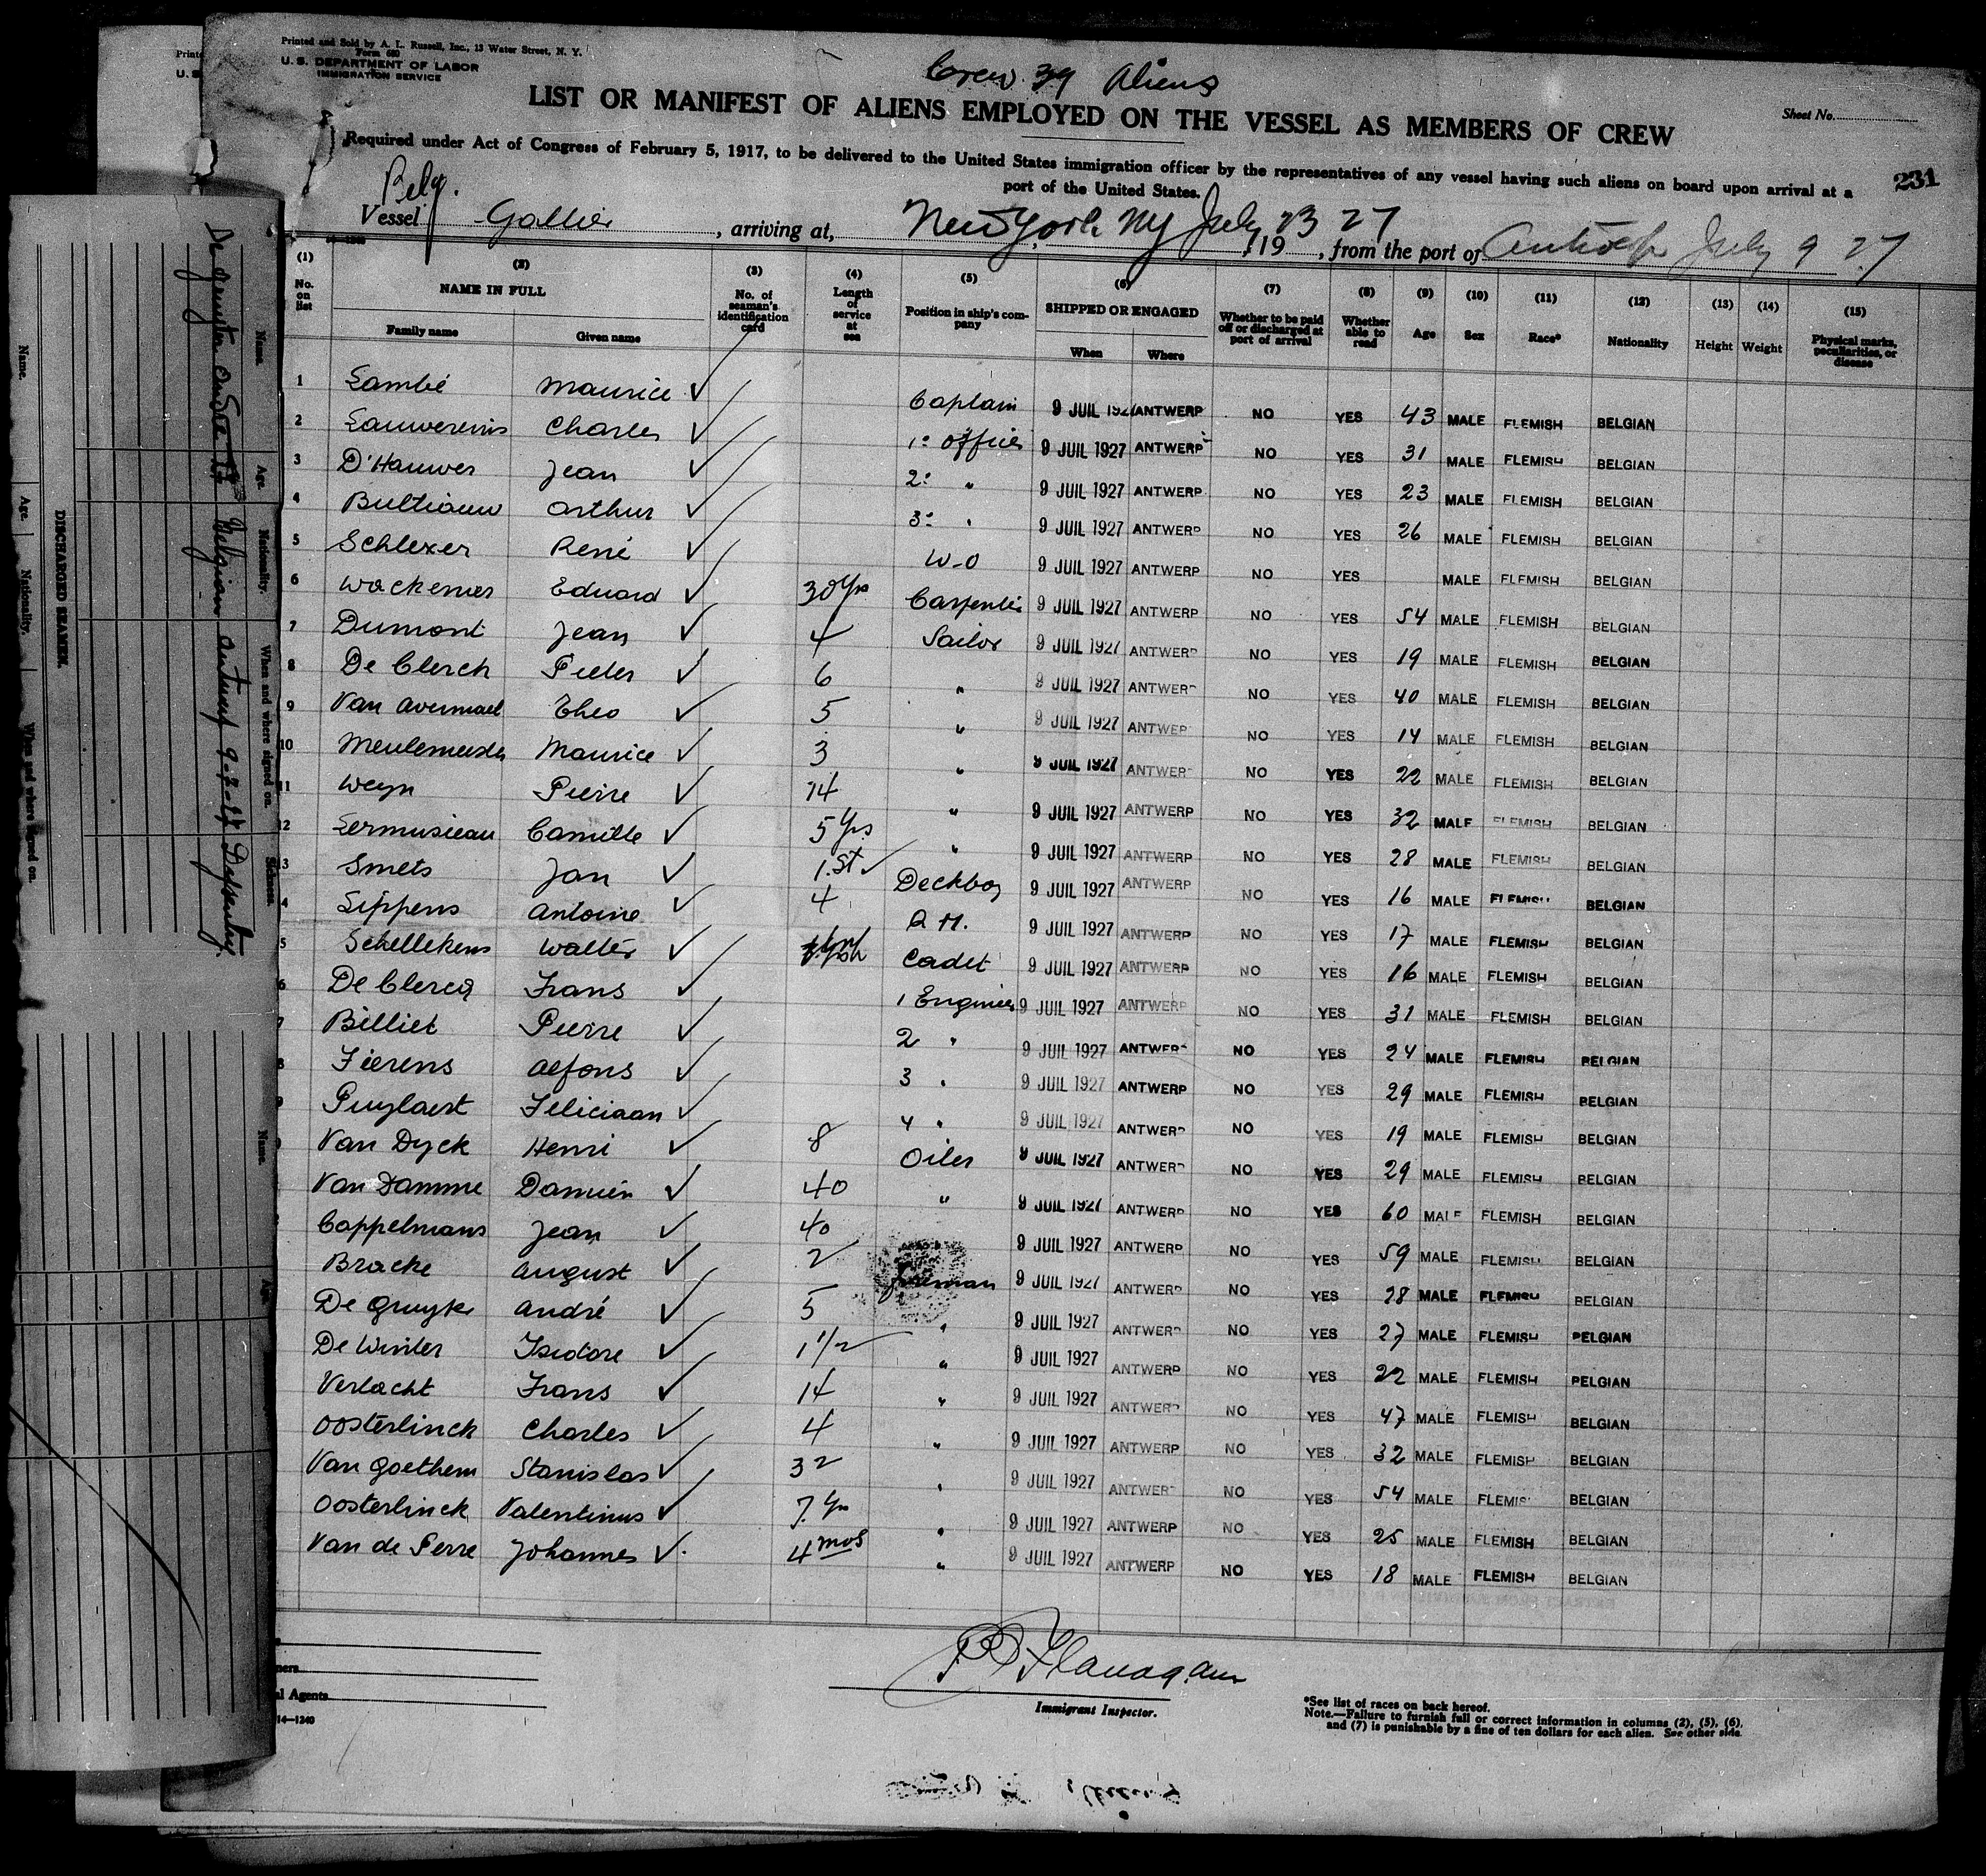 Printed and Sold by A. L. Russell, Inc., 13 Water Street, N. Y.
Form 680
U. S. DEPARTMENT OF LABOR
IMMIGRATION SERVICE
Crew 39 Aliens
LIST OR MANIFEST OF ALIENS EMPLOYED ON THE VESSEL AS MEMBERS OF CREW
Sheet No.
Required under Act of Congress of February 5, 1917, to be delivered to the United States immigration officer by the representatives of any vessel having such aliens on board upon arrival at a
port of the United States.
231
Belg.
Vessel Gallier, arriving at, New York NY July 23 27, 19, from the port of Antwerp July 9 27
(1) (2) (3) (4) (5) (6) (7) (8) (9) (10) (11) (12) (13) (14) (15)
No. on list NAME IN FULL Family name Given name No. of seaman's identification card Length of service at sea Position in ship's company SHIPPED OR ENGAGED When Where Whether to be paid off or discharged at port of arrival Whether able to read Age Sex Race* Nationality Height Weight Physical marks, peculiarities, or disease
1 Lambé Maurice Captain 9 JUIL 1927 ANTWERP NO YES 43 MALE FLEMISH BELGIAN
2 Lauwereins Charles 1: Officer 9 JUIL 1927 ANTWERP NO YES 31 MALE FLEMISH BELGIAN
3 D'Hauwer Jean 2: " 9 JUIL 1927 ANTWERP NO YES 23 MALE FLEMISH BELGIAN
4 Bultiauw Arthur 3: " 9 JUIL 1927 ANTWERP NO YES 26 MALE FLEMISH BELGIAN
5 Schlexer René W-O 9 JUIL 1927 ANTWERP NO YES MALE FLEMISH BELGIAN
6 Wackenier Eduard 30 Yrs Carpenter 9 JUIL 1927 ANTWERP NO YES 54 MALE FLEMISH BELGIAN
7 Dumont Jean 4 Sailor 9 JUIL 1927 ANTWERP NO YES 19 MALE FLEMISH BELGIAN
8 De Clerck Pieter 6 " 9 JUIL 1927 ANTWERP NO YES 40 MALE FLEMISH BELGIAN
9 Van Avermaet Theo 5 " 9 JUIL 1927 ANTWERP NO YES 14 MALE FLEMISH BELGIAN
10 Meulemeester Maurice 3 " 9 JUIL 1927 ANTWERP NO YES 22 MALE FLEMISH BELGIAN
11 Weyn Pierre 14 " 9 JUIL 1927 ANTWERP NO YES 32 MALE FLEMISH BELGIAN
12 Lermusieau Camille 5 Yrs " 9 JUIL 1927 ANTWERP NO YES 28 MALE FLEMISH BELGIAN
3 Smets Jan 1.St Deckboy 9 JUIL 1927 ANTWERP NO YES 16 MALE FLEMISH BELGIAN
4 Lippens Antoine 4 9 JUIL 1927 ANTWERP NO YES 17 MALE FLEMISH BELGIAN
5 Schellekens Walter Cadet 9 JUIL 1927 ANTWERP NO YES 16 MALE FLEMISH BELGIAN
6 De Clercq Frans 1 Engineer 9 JUIL 1927 ANTWERP NO YES 31 MALE FLEMISH BELGIAN
7 Billiet Pierre 2 " 9 JUIL 1927 ANTWERP NO YES 24 MALE FLEMISH BELGIAN
8 Fierens Alfons 3 " 9 JUIL 1927 ANTWERP NO YES 29 MALE FLEMISH BELGIAN
9 Puylaert Feliciaan 4 " 9 JUIL 1927 ANTWERP NO YES 19 MALE FLEMISH BELGIAN
Van Dyck Henri 8 Oiler 9 JUIL 1927 ANTWERP NO YES 29 MALE FLEMISH BELGIAN
Van Damme Damien 40 " 9 JUIL 1927 ANTWERP NO YES 60 MALE FLEMISH BELGIAN
Cappelmans Jean 40 9 JUIL 1927 ANTWERP NO YES 59 MALE FLEMISH BELGIAN
Bracke August 2 Fireman 9 JUIL 1927 ANTWERP NO YES 28 MALE FLEMISH BELGIAN
De Gruyter André 5 " 9 JUIL 1927 ANTWERP NO YES 27 MALE FLEMISH BELGIAN
De Winter Isidore 1 1/2 " 9 JUIL 1927 ANTWERP NO YES 22 MALE FLEMISH BELGIAN
Verlacht Frans 14 " 9 JUIL 1927 ANTWERP NO YES 47 MALE FLEMISH BELGIAN
Oosterlinck Charles 4 " 9 JUIL 1927 ANTWERP NO YES 32 MALE FLEMISH BELGIAN
Van Goethem Stanislas 32 " 9 JUIL 1927 ANTWERP NO YES 54 MALE FLEMISH BELGIAN
Oosterlinck Valentinus 7 Yrs " 9 JUIL 1927 ANTWERP NO YES 25 MALE FLEMISH BELGIAN
Van de Perre Johannes 4 mos " 9 JUIL 1927 ANTWERP NO YES 18 MALE FLEMISH BELGIAN
P D Flanagan
Immigrant Inspector.
al Agents
14—1240
*See list of races on back hereof.
Note.—Failure to furnish full or correct information in columns (2), (5), (6),
and (7) is punishable by a fine of ten dollars for each alien. See other side.
DISCHARGED SEAMEN.
Name. Age. Nationality. When and where signed on. Sickness.
Belgian Antwerp 9-7-27
Name. Age. Nationality. When and where signed on.
Name. Age.